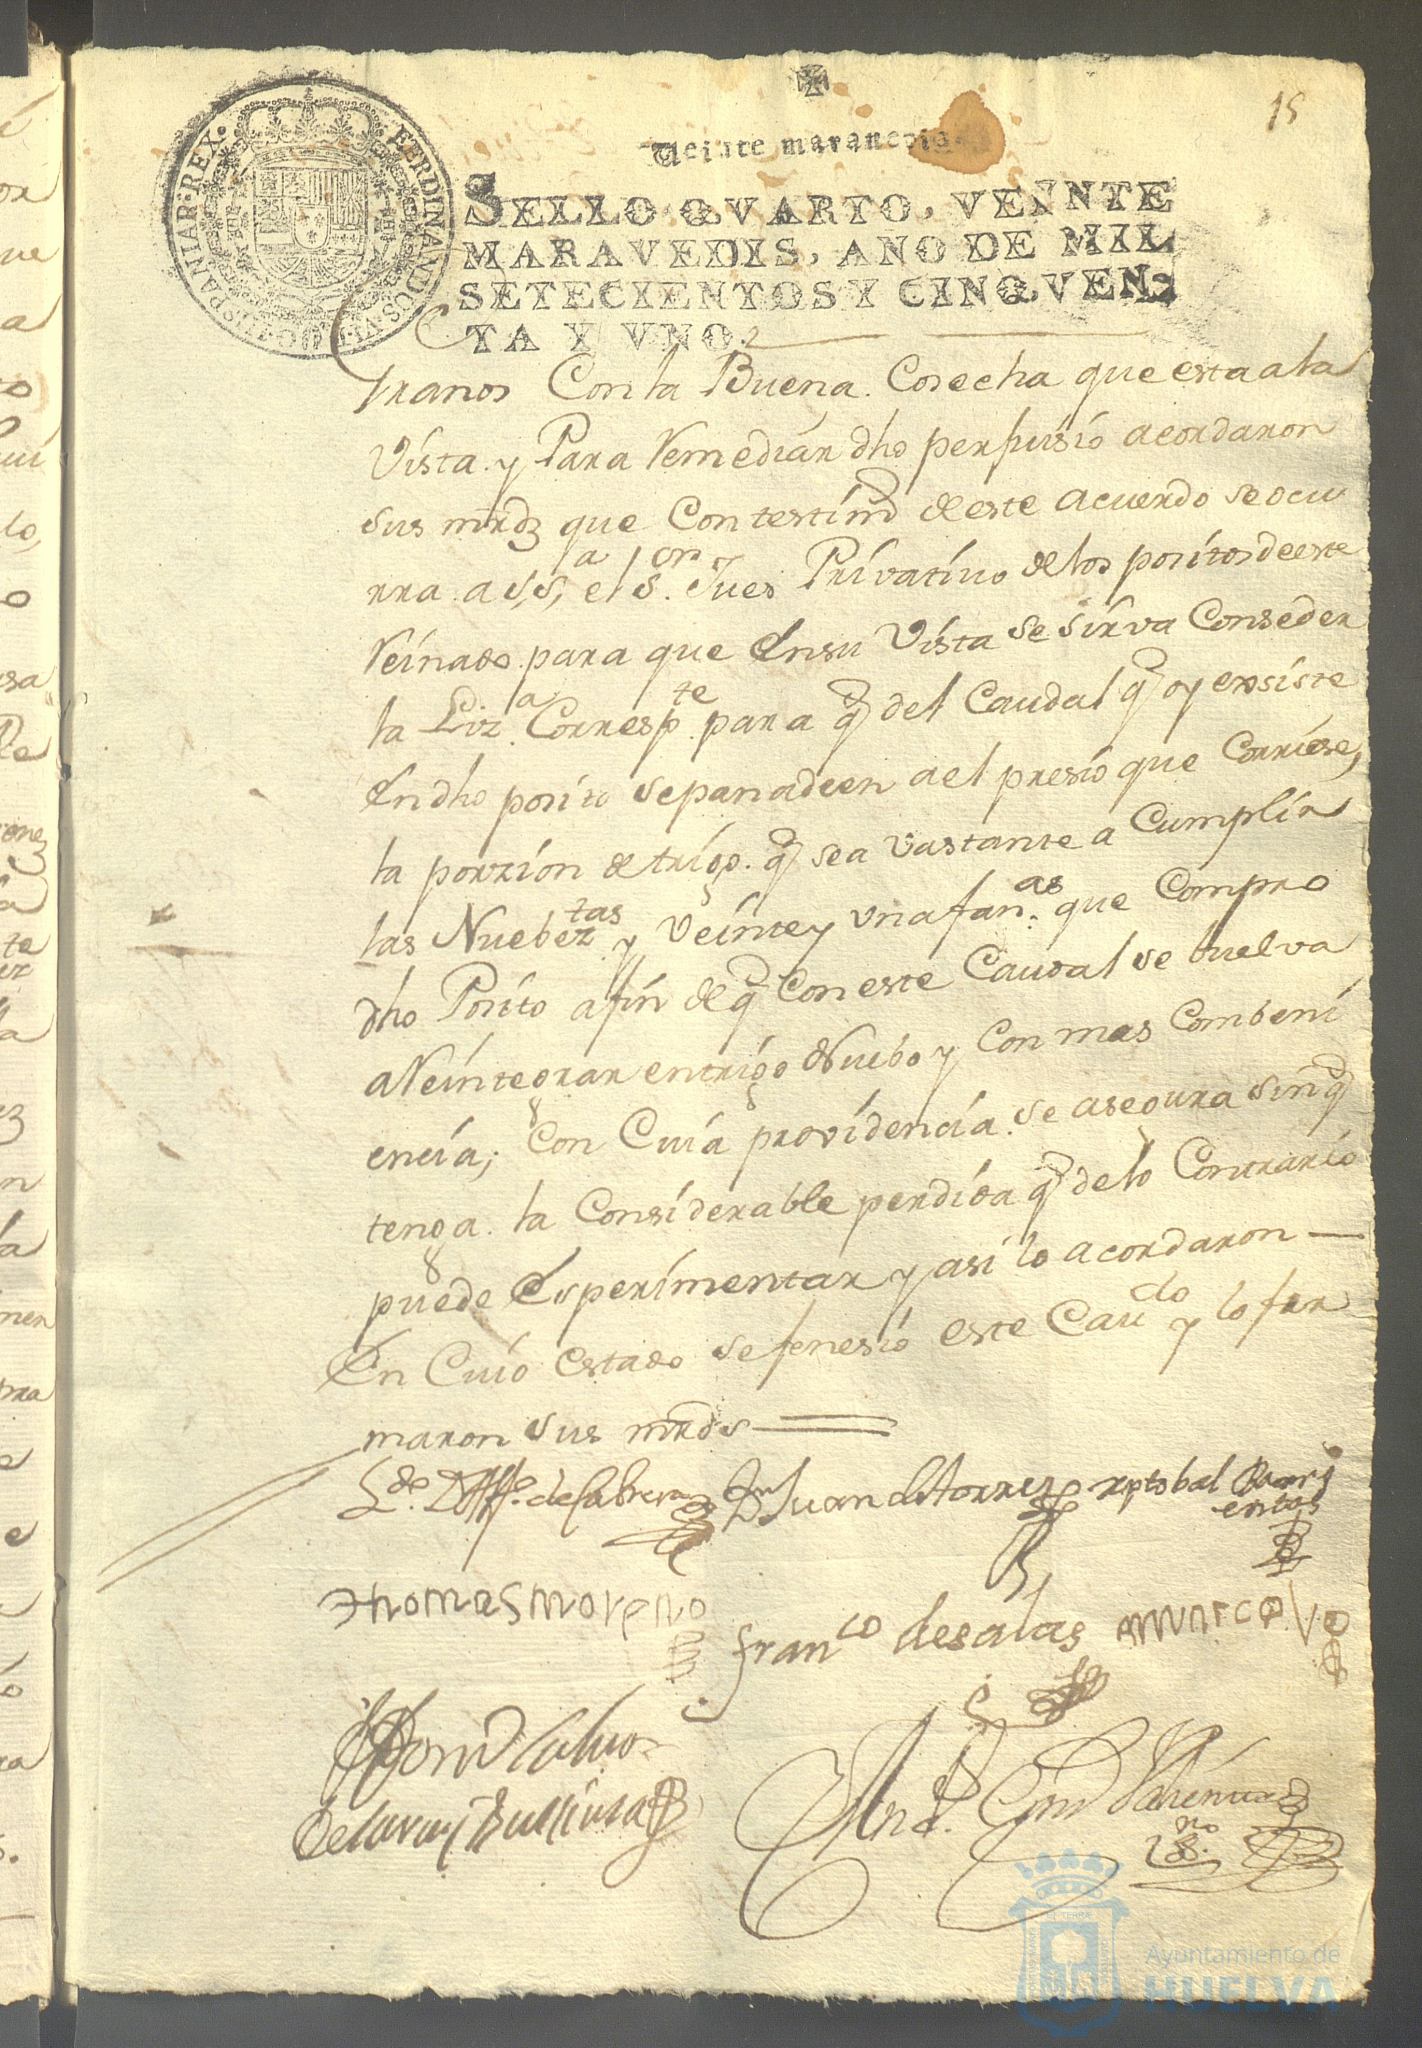 15
Veinte maravedis
SELLO QVARTO, VEINTE
MARAVEDIS, AÑO DE MIL
SETECIENTOS Y CINQVEN-
TA Y VNO.
FERDINANDUS VI D G HISPANIAR REX
tranos Con la Buena Cosecha que esta a la
Vista y Para Remediar dho perjuisio acordaron
sus mrds que Con testimo de este acuerdo se ocu
rra a S,S,a el Sor Jues Privativo de los positos de este
Reinado para que En su Vista se sirva Conseder
la Liz.a Corresp.te para q del Caudal q oy exsiste
En dho posito se panadeen a el presio que Corriese,
la porzion de trigo q sea vastante a Cumplir
las Nuebeztas y Veinte y una fan.as que Compro
dho Posito a fin de q Con este Caudal se buelva
a Reintegrar en trigo Nuebo y Con mas Combeni
encia; Con Cuia providencia se asegura sin q
tenga la Considerable perdida q de lo Contrario
puede Esperimentar y asi lo acordaron
En Cuio estado se fenesio este Cavdo y lo fir
maron sus mrds
Ldo. de Cabrera Dn Juan de Torres xptobal Barri
entos
Thomas Moreno
Franco de Salas Marco
Calvo
An
no
Ayuntamiento de
HUELVA